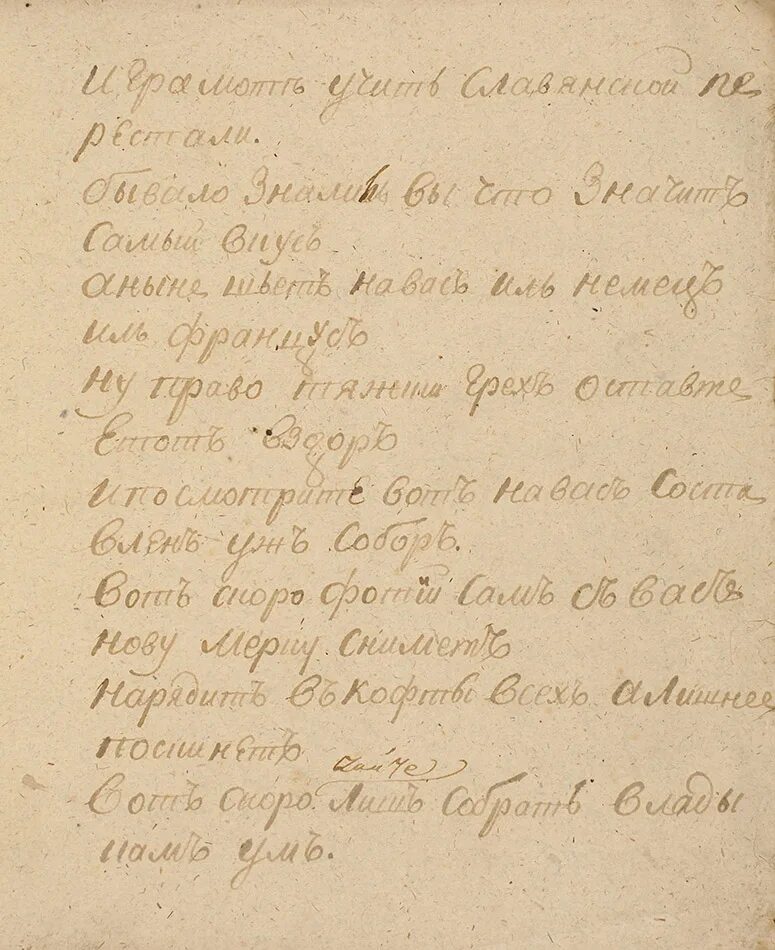 И Грамотѣ учить Славянской пе
рестали.
бывало Знали вы что Значитъ
Самый Вкусъ
аныне шьетъ навасъ иль немецъ
иль французъ
ну право тяжкии Грехъ оставте
Етотъ вздоръ
ипосмотрите вотъ навасъ Соста
вленъ ужъ Соборъ.
Вотъ скоро фотїй Самъ съ васъ
нову Мерку Сниметъ
нарядитъ въ кофты всехъ а лишнее
поскинетъ
чайче
Вотъ скоро Лишъ Собратъ Влады
камъ умъ.